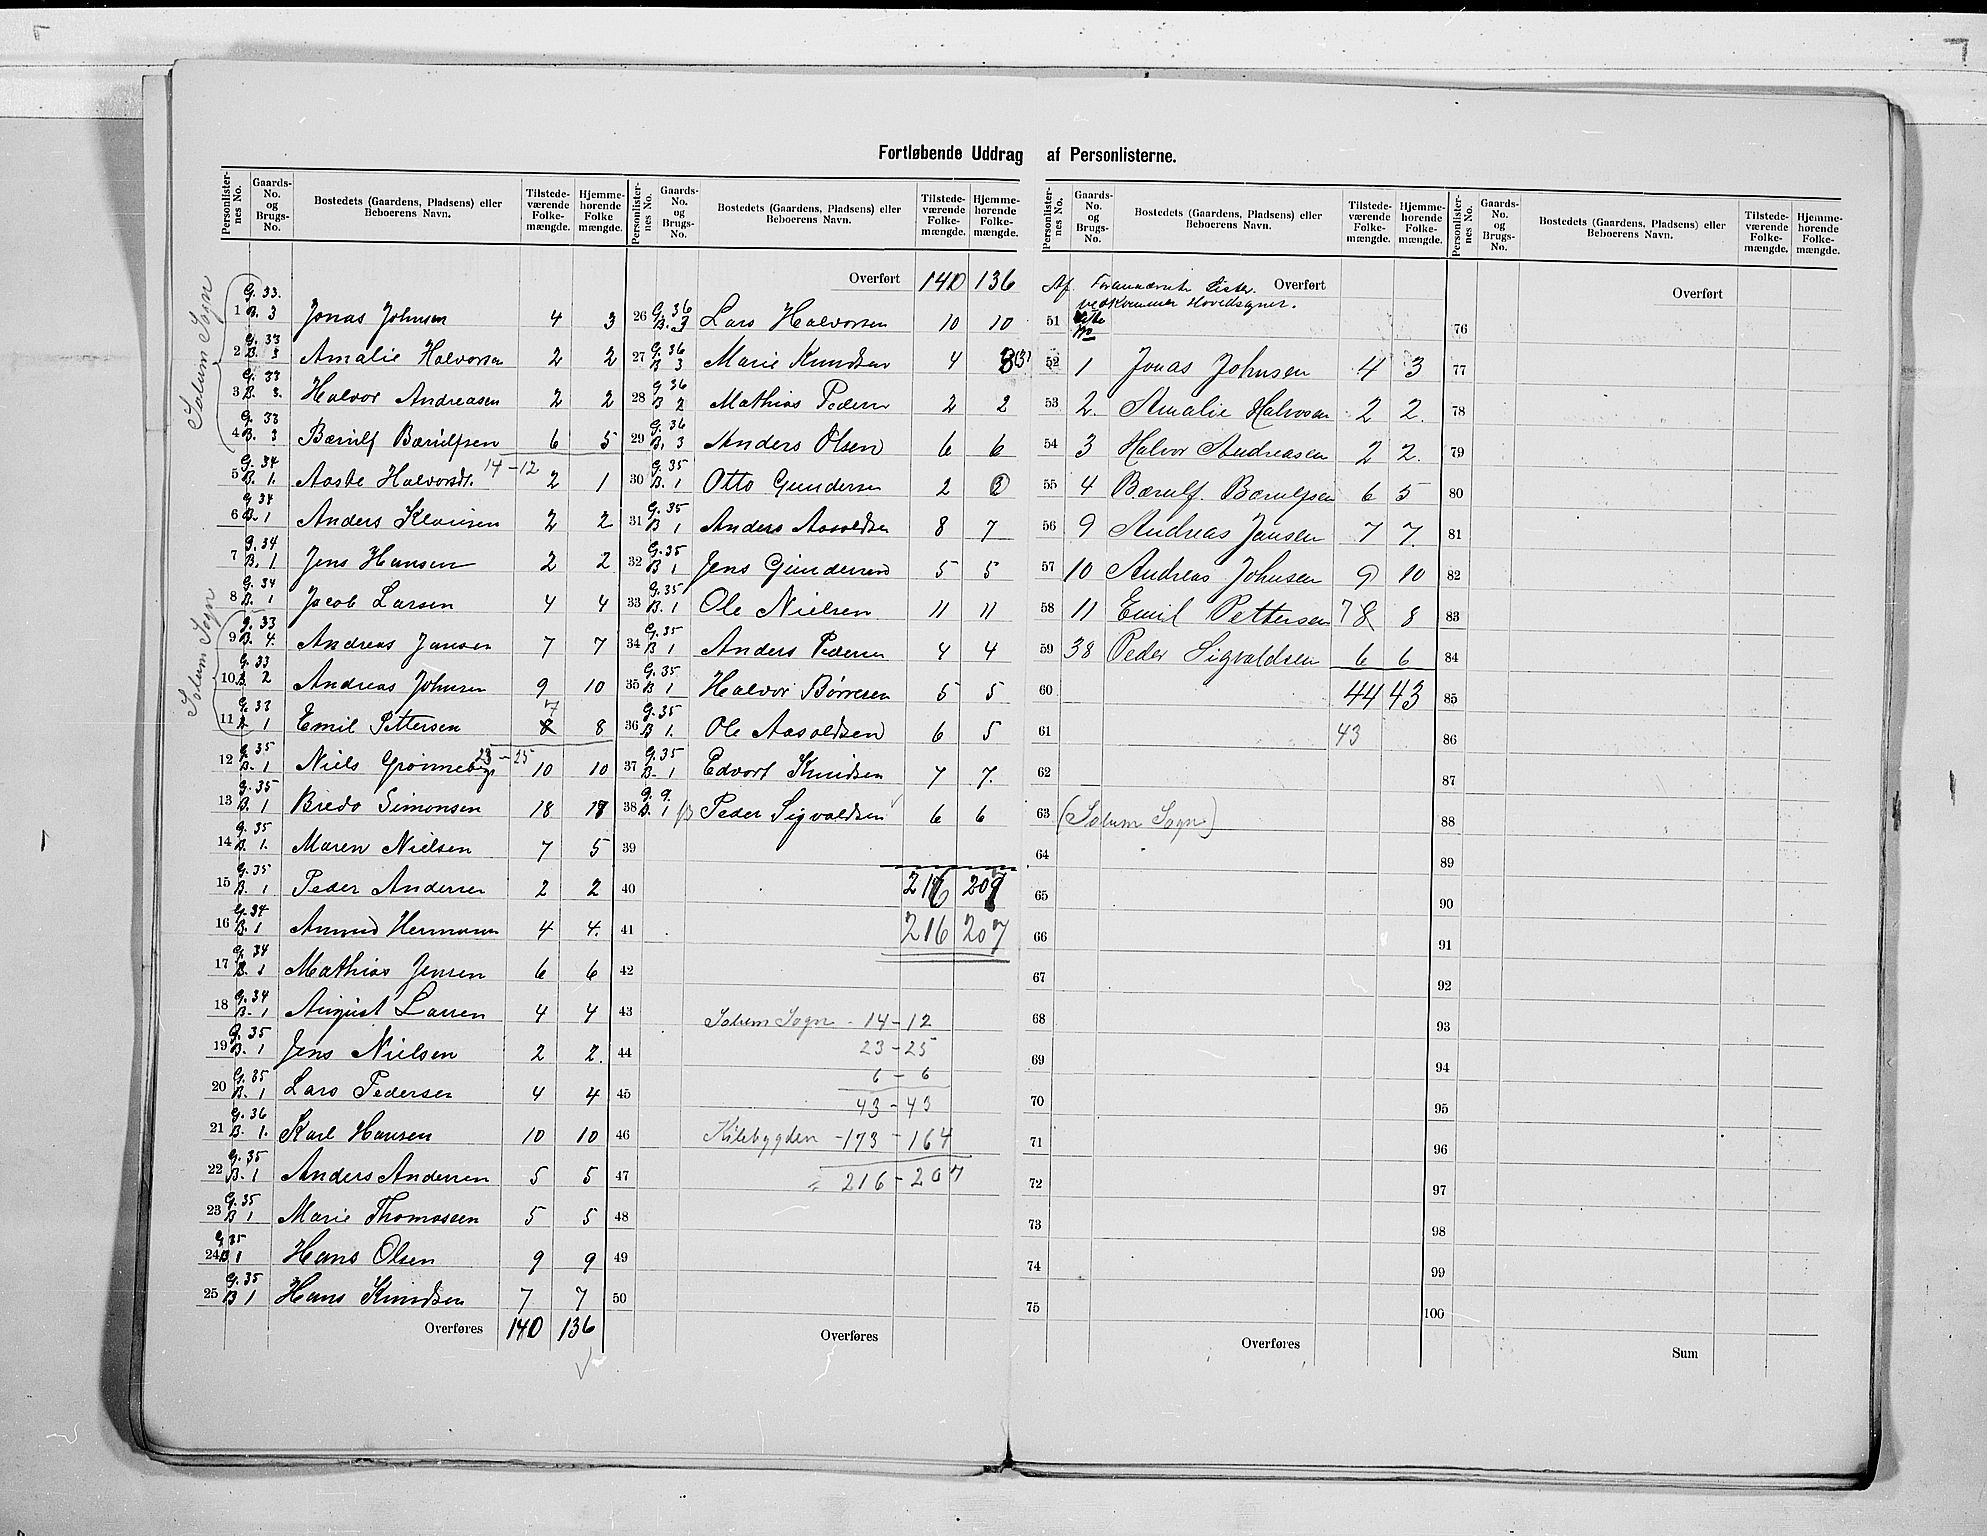 Fortløbende Uddrag af Personlisterne.
Personlisternes No. Gaards-No. og Brugs-No. Bostedets (Gaardens, Pladsens) eller Beboerens Navn. Tilstedeværende Folkemængde. Hjemmehørende Folkemængde.
Solum Sogn
1 G. 33. B. 3 Jonas Johnsen 4 3
2 G. 33 B. 3 Amalie Halvorsen 2 2
3 G. 33 B. 3. Halvor Andreasen 2 2
4 G. 33 B. 3 Bærulf Bærulfsen 6 5
14-12
5 G. 34 B. 1. Aaste Halvorsdt. 2 1
6 G. 34 B. 1 Anders Klausen 2 2
7 G. 34 B. 1 Jens Hansen 2 2
8 G. 34 B. 1 Jacob Larsen 4 4
Solum Sogn
9 G. 33 B. 4. Andreas Jansen 7 7
10 G. 33 B. 2 Andreas Johnsen 9 10
11 G. 33 B. 1 Emil Pettersen 8 7 8
23-25
12 G. 35 B. 1 Niels Grønnebergs 10 10
13 G. 35 B. 1 Bredo Simonsen 18 17
14 G. 35 B. 1. Maren Nielsen 7 5
15 G. 35 B. 1 Peder Andersen 2 2
16 G. 34 B. 1 Amund Hermansen 4 4.
17 G. 34 B. 1 Mathias Jensen 6 6
18 G. 34 B. 1 August Larsen 4 4
19 G. 35 B. 1 Jens Nielsen 2 2.
20 G. 35 B. 1 Lars Pedersen 4 4
21 G. 36 B. 1. Karl Hansen 10 10
22 G. 35 B. 1 Anders Andersen 5 5
23 G. 35 B 1 Marie Thomassen 5 5
24 G 35 B 1 Hans Olsen 9 9
25 G. 35 B 1 Hans Knudsen 7 7
Overføres 140 136
Personlisternes No. Gaards-No. og Brugs-No. Bostedets (Gaardens, Pladsens) eller Beboerens Navn. Tilstedeværende Folkemængde. Hjemmehørende Folkemængde.
Overført 140 136
26 G. 36 B. 3 Lars Halvorsen 10 10
27 G. 36 B 3 Marie Knudsen 4 3 (3)
28 G 36 B 2 Mathias Pedersen 2 2
29 G. 36 B. 3 Anders Olsen 6 6
30 G. 35 B. 1 Otto Gundersen 2 2
31 G. 35 B 1 Anders Aasoldsen 8 7
32 G. 35 B 1 Jens Gundersen 5 5
33 G. 35 B. 1 Ole Nielsen 11 11
34 G. 35 B 1 Anders Pedersen 4 4
35 G. 35 B 1 Halvor Børresen 5 5
36 G. 35 B 1. Ole Aasoldsen 6 5
37 G. 35 B. 1 Edvort Knudsen 7 7.
38 G. 9. B. 1 Peder Sigvaldsen 6 6
39
40 216 209
41 216 207
42
43 Solum Sogn - 14-12
44 23-25
6-6
45 43-43
46 Kilebygden -173-164
47 216-207
48
49
50
Overføres
Personlisternes No. Gaards-No. og Brugs-No. Bostedets (Gaardens, Pladsens) eller Beboerens Navn. Tilstedeværende Folkemængde. Hjemmehørende Folkemængde.
Overført
Af Forannævnte Lister
vedkommer Hovedsognet.
51 Liste No
52 1 Jonas Johnsen 4 3
53 2. Amalie Halvosen 2 2.
54 3 Halvor Andreasen 2 2.
55 4 Bærulf Bærulfsen 6 5
56 9 Andreas Jansen 7 7.
57 10 Andreas Johnsen 9 10
58 11 Emil Pettersen 7 8 8
59 38 Peder Sigvaldsen 6 6
60 44 43
61 43
62
63 (Solum Sogn)
64
65
66
67
68
69
70
71
72
73
74
75
Overføres
Personlisternes No. Gaards-No. og Brugs-No. Bostedets (Gaardens, Pladsens) eller Beboerens Navn. Tilstedeværende Folkemængde. Hjemmehørende Folkemængde.
Overført
76
77
78
79
80
81
82
83
84
85
86
87
88
89
90
91
92
93
94
95
96
97
98
99
100
Sum